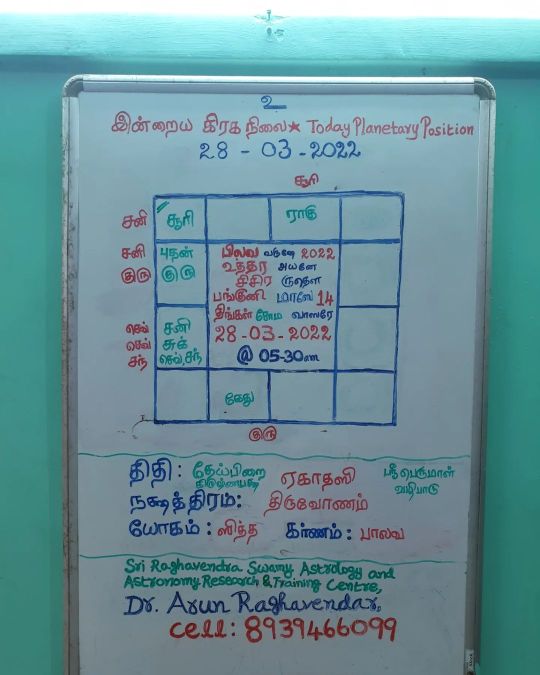 உ
இன்றைய கிரக நிலை★ Today Planetary Position
28 - 03 - 2022
சூரி
சனி சூரி ராகு
சனி புதன்
குரு குரு
பிலவ வருஷ 2022
உத்தர அயனே
சிசிர ருதௌ
பங்குனி மாஸே 14
திங்கள் சோம வாஸரே
28 - 03 - 2022
@ 05-30am
செவ் சனி
செவ் சுக்
சந் செவ்,சந்
கேது
குரு
திதி : தேய்பிறை ஏகாதஸி
ஸ்ரீ பெருமாள்
வழிபாடு
நக்ஷத்திரம்: திருவோணம்
யோகம் : ஸித்த கர்ணம் : பாலவ
Sri Raghavendra Swamy Astrology and
Astronomy Research & Training Centre,
Dr. Arun Raghavendar,
cell: 8939466099